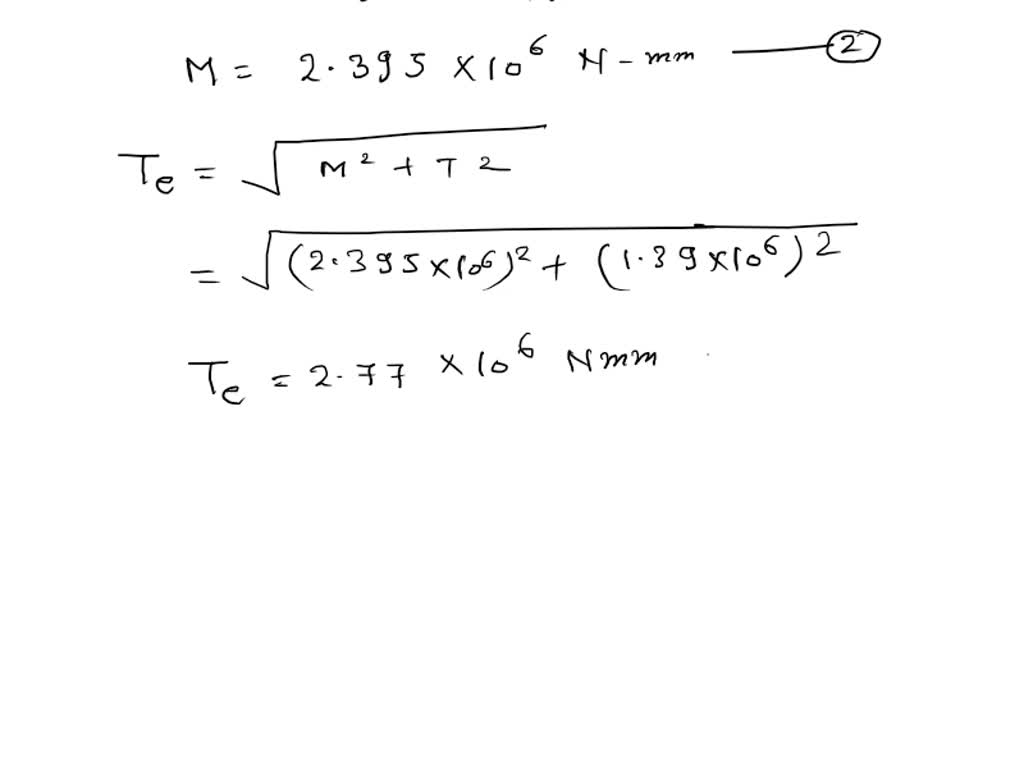 M = 2.395 × 10⁶ N-mm —— ②
Te = √(M² + T2)
= √((2.395×10⁶)² + (1.39×10⁶)2)
Te = 2.77 × 10⁶ Nmm